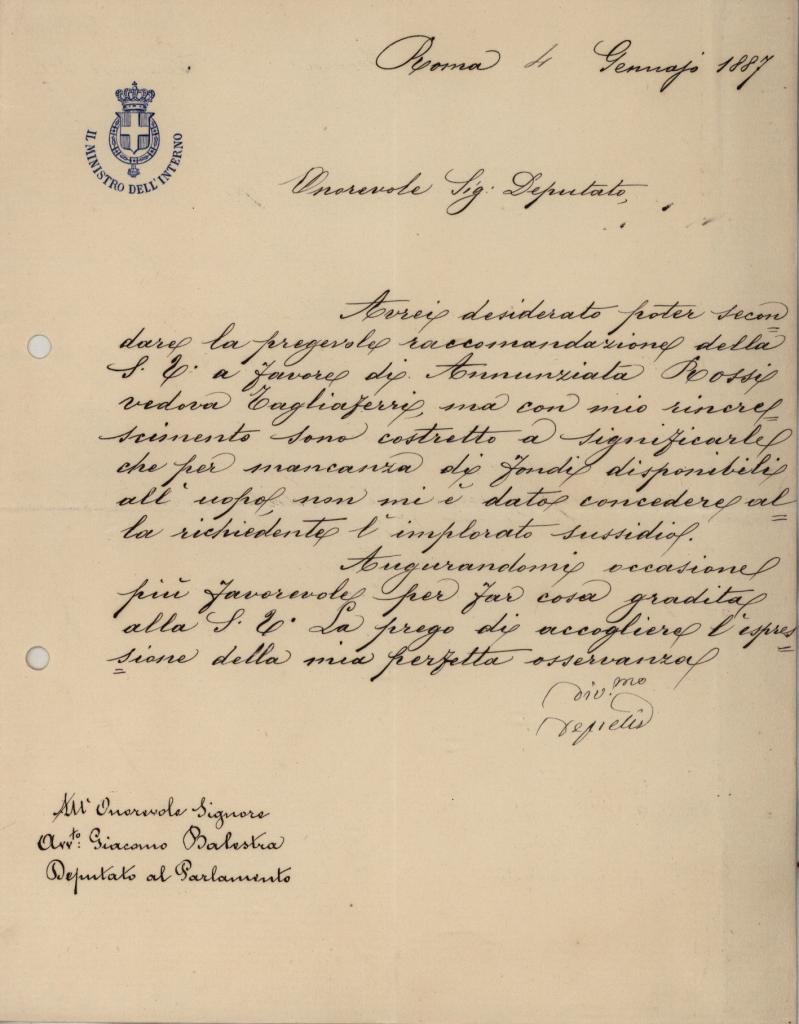 Roma 4 Gennajo 1887
IL MINISTRO DELL'INTERNO
Onorevole Sig: Deputato,
Avrei desiderato poter secon=
dare la pregevole raccomandazione della
S. V. a favore di Annunziata Rossi
vedova Tagliaferri, ma con mio rincre=
scimento sono costretto a significarle
che per mancanza di fondi disponibili
all'uopo, non mi è dato concedere al=
la richiedente l'implorato sussidio.
Augurandomi occasione
più favorevole per far cosa gradita
alla S. V. La prego di accogliere l'espres=
=sione della mia perfetta osservanza
Div.mo
Depretis
All'Onorevole Signore
Avv.to: Giacomo Balestra
Deputato al Parlamento